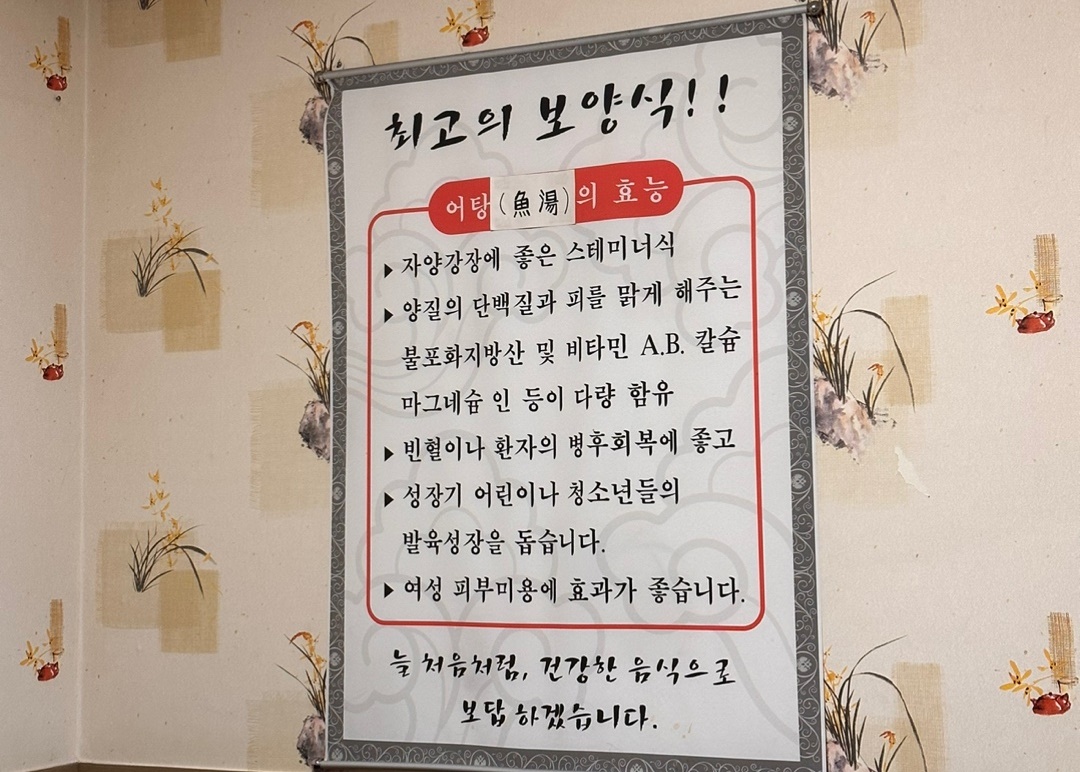 최고의 보양식!!
어탕(魚湯)의 효능
▶ 자양강장에 좋은 스테미너식
▶ 양질의 단백질과 피를 맑게 해주는
불포화지방산 및 비타민 A.B. 칼슘
마그네슘 인 등이 다량 함유
▶ 빈혈이나 환자의 병후회복에 좋고
▶ 성장기 어린이나 청소년들의
발육성장을 돕습니다.
▶ 여성 피부미용에 효과가 좋습니다.
늘 처음처럼, 건강한 음식으로
보답 하겠습니다.